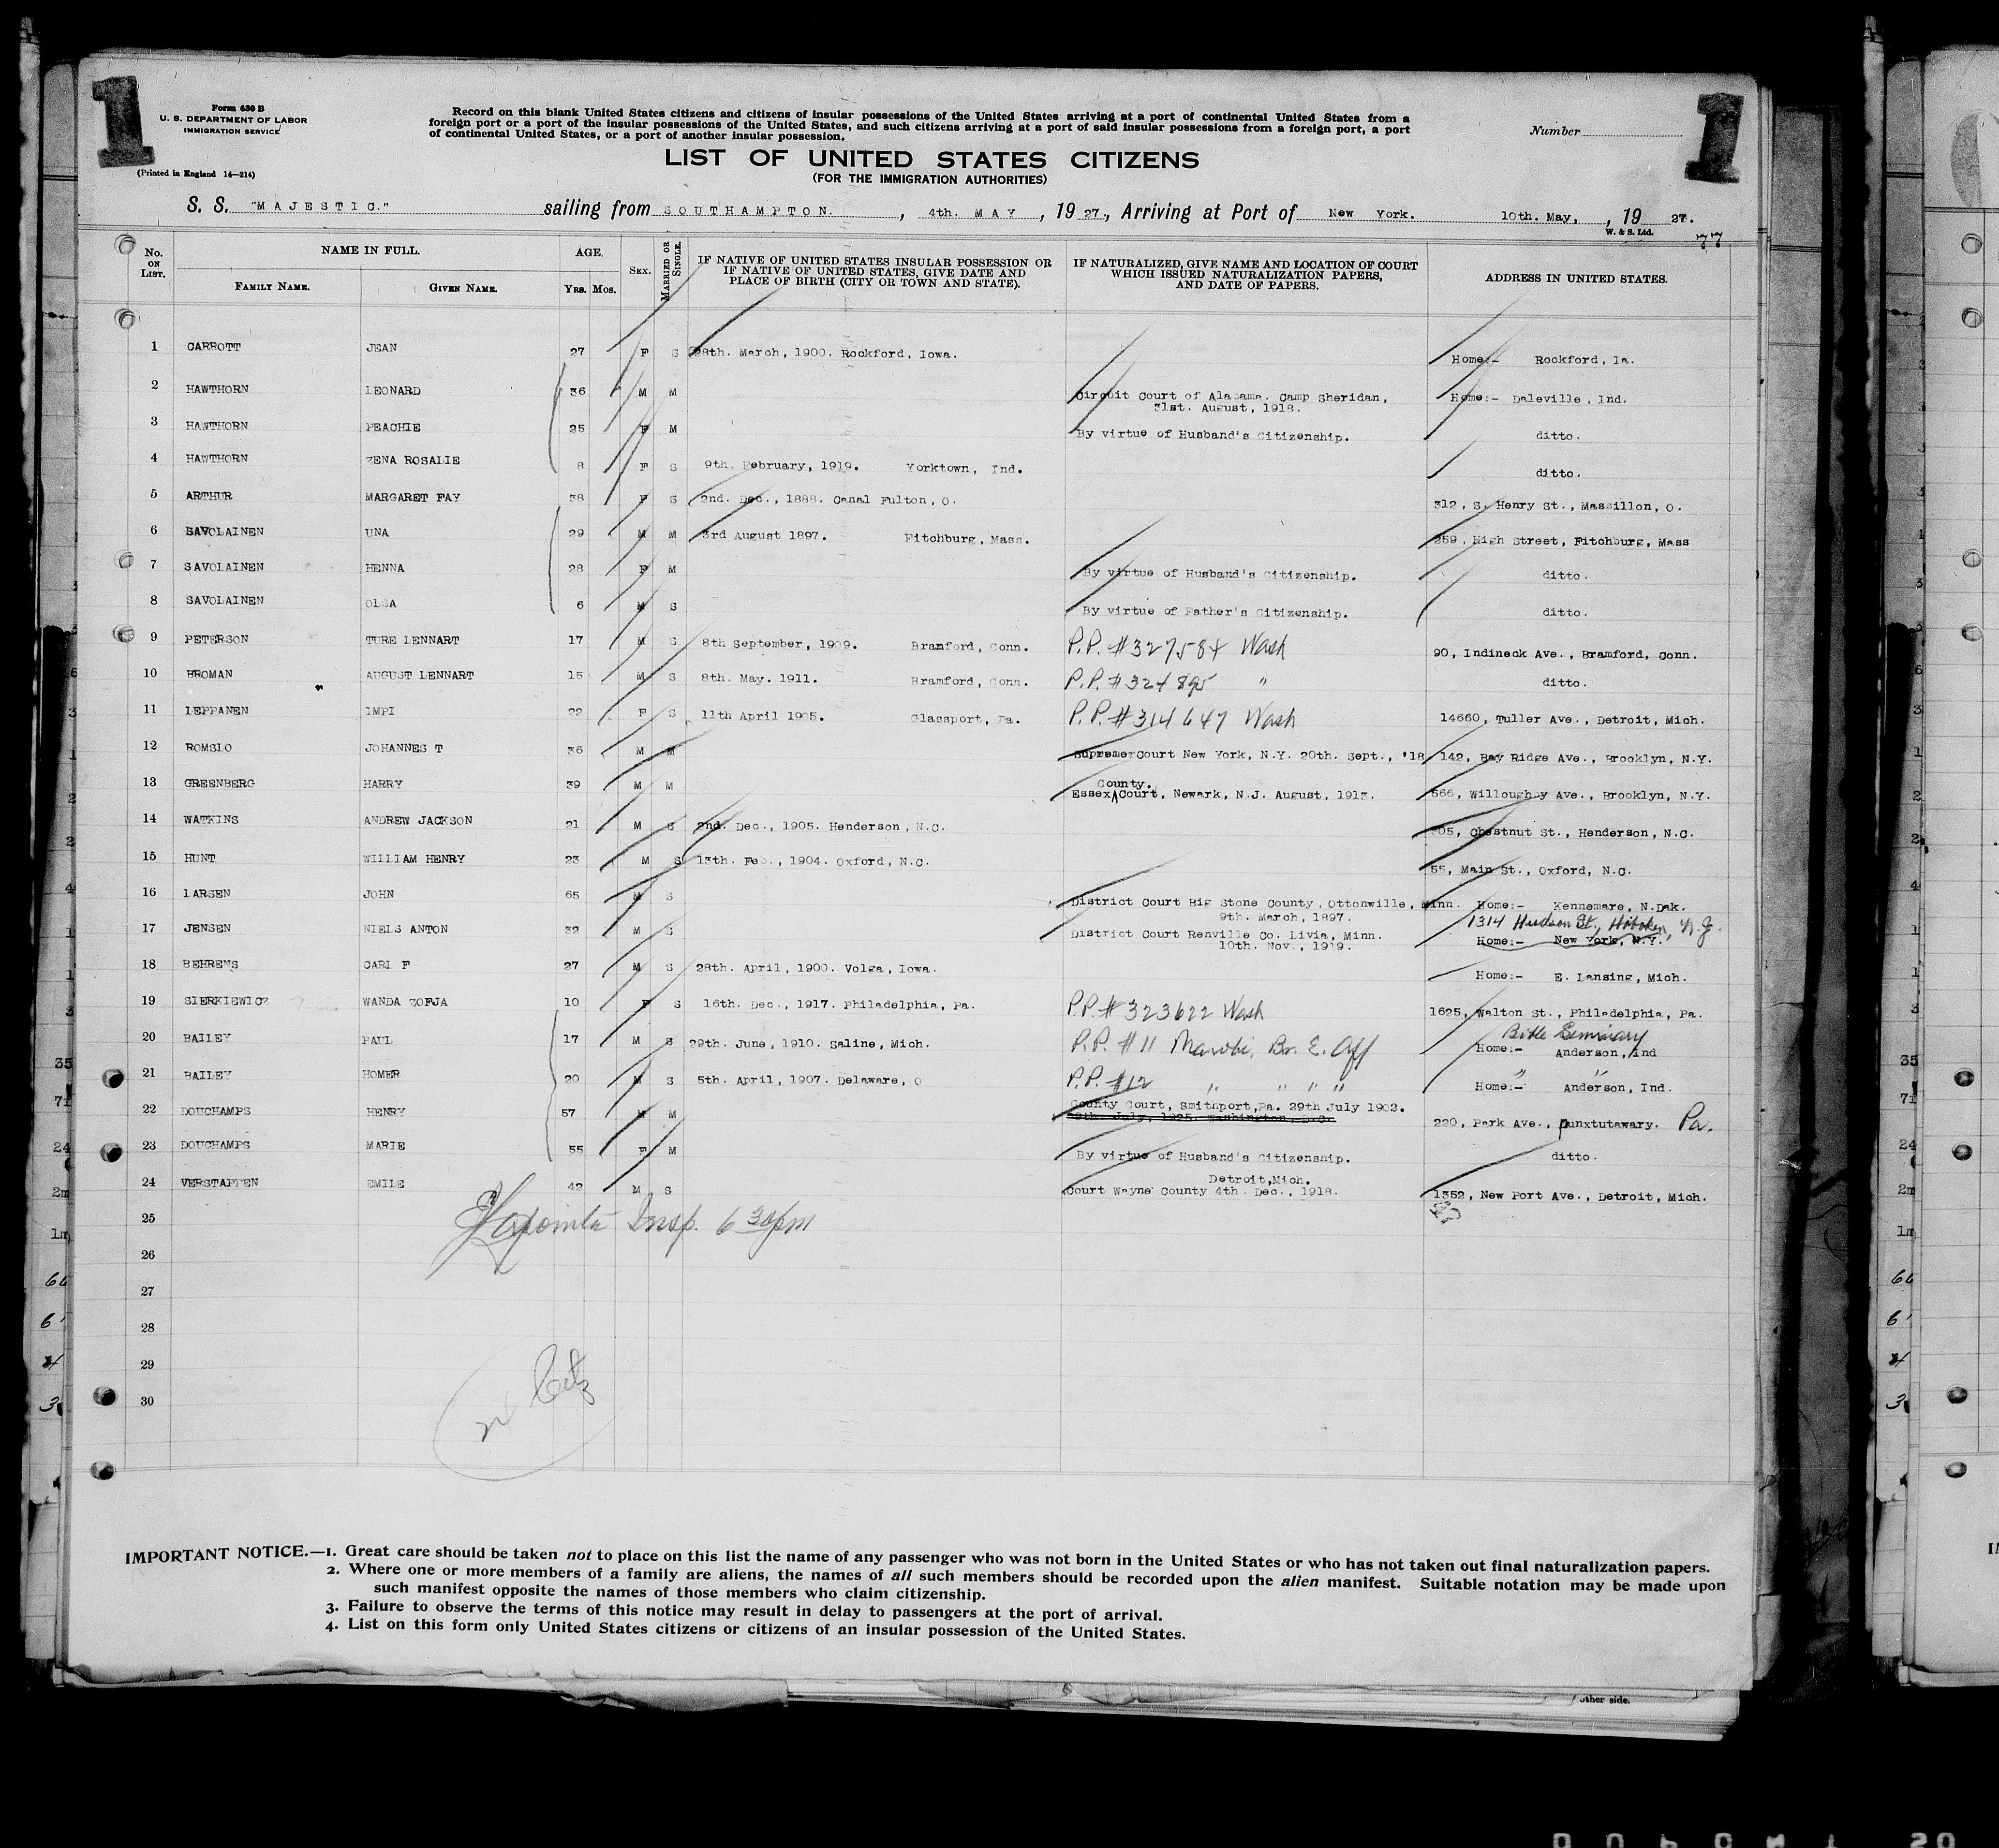 1
1
Form 630 B
U. S. DEPARTMENT OF LABOR
IMMIGRATION SERVICE
(Printed in England 14—214)
Record on this blank United States citizens and citizens of insular possessions of the United States arriving at a port of continental United States from a
foreign port or a port of the insular possessions of the United States, and such citizens arriving at a port of said insular possessions from a foreign port, a port
of continental United States, or a port of another insular possession.
Number
LIST OF UNITED STATES CITIZENS
(FOR THE IMMIGRATION AUTHORITIES)
S. S. "MAJESTIC." sailing from SOUTHAMPTON. , 4th. MAY , 19 27., Arriving at Port of New York. 10th. May, , 19 27.
W. & S. Ltd.
77
No. ON LIST. NAME IN FULL. FAMILY NAME. GIVEN NAME. AGE. YRS. MOS. SEX. MARRIED OR SINGLE. IF NATIVE OF UNITED STATES INSULAR POSSESSION OR IF NATIVE OF UNITED STATES, GIVE DATE AND PLACE OF BIRTH (CITY OR TOWN AND STATE). IF NATURALIZED, GIVE NAME AND LOCATION OF COURT WHICH ISSUED NATURALIZATION PAPERS, AND DATE OF PAPERS. ADDRESS IN UNITED STATES.
1 CARROTT JEAN 27 F S 28th. March, 1900. Rockford, Iowa. Home:- Rockford, Ia.
2 HAWTHORN LEONARD 36 M M Circuit Court of Alabama. Camp Sheridan, Home:- Daleville, Ind.
31st. August, 1918.
3 HAWTHORN PEACHIE 25 F M By virtue of Husband's Citizenship. ditto.
4 HAWTHORN ZENA ROSALIE 8 F S 9th. February, 1919. Yorktown, Ind. ditto.
5 ARTHUR MARGARET FAY 38 F S 2nd. Dec., 1888. Canal Fulton, O. 312, S. Henry St., Massillon, O.
6 SAVOLAINEN UNA 29 M M 3rd August 1897. Fitchburg, Mass. 259, High Street, Fitchburg, Mass
7 SAVOLAINEN HENNA 28 F M By virtue of Husband's Citizenship. ditto.
8 SAVOLAINEN OLGA 6 M S By virtue of Father's Citizenship. ditto.
9 PETERSON TURE LENNART 17 M S 8th September, 1909. Bramford, Conn. P.P. #327584 Wash 90, Indineck Ave., Bramford, Conn.
10 BROMAN AUGUST LENNART 15 M S 8th. May. 1911. Bramford, Conn. P.P. #324895 " ditto.
11 LEPPANEN IMPI 22 F S 11th April 1905. Glassport, Pa. P.P. #314647 Wash 14660, Tuller Ave., Detroit, Mich.
12 ROMSLO JOHANNES T 36 M M Supreme Court New York, N.Y. 20th. Sept., '18 142, Bay Ridge Ave., Brooklyn, N.Y.
13 GREENBERG HARRY 39 M M County.
Essex Court, Newark, N.J. August, 1913. 566, Willoughby Ave., Brooklyn, N.Y.
14 WATKINS ANDREW JACKSON 21 M S 2nd. Dec., 1905. Henderson, N.C. 305, Chestnut St., Henderson, N.C.
15 HUNT WILLIAM HENRY 23 M S 13th. Feb., 1904. Oxford, N.C. 55, Main St., Oxford, N.C.
16 LARSEN JOHN 65 M S District Court Big Stone County, Ottonville, Minn. Home:- Kennemare, N.Dak.
9th. March, 1897. 1314 Hudson St., Hoboken, N.J.
17 JENSEN NIELS ANTON 32 M S District Court Renville Co. Livia, Minn. Home:- New York, N.Y.
10th. Nov., 1919.
18 BEHRENS CARL F 27 M S 28th. April, 1900. Volga, Iowa. Home:- E. Lansing, Mich.
19 SIERKIEWICZ WANDA ZOFJA 10 F S 16th. Dec., 1917. Philadelphia, Pa. P.P. #323622 Wash 1625, Walton St., Philadelphia, Pa.
Bible Seminary
20 BAILEY PAUL 17 M S 29th. June, 1910. Saline, Mich. P.P. #11 Br. E. Aff Home:- Anderson, Ind
21 BAILEY HOMER 20 M S 5th. April, 1907. Delaware, O P.P. #12 " " " " Home:- Anderson, Ind.
22 DOUCHAMPS HENRY 57 M M County Court, Smithport, Pa. 29th July 1902. 220, Park Ave., Punxtutawary. Pa.
29th. July, 1925. Washington, D.C.
23 DOUCHAMPS MARIE 55 F M By virtue of Husband's Citizenship. ditto.
24 VERSTAPPEN EMILE 42 M S Detroit, Mich.
Court Wayne County 4th. Dec., 1918. 1352, New Port Ave., Detroit, Mich.
25 Insp. 6 30 pm
26
27
28
29
30
IMPORTANT NOTICE.—1. Great care should be taken not to place on this list the name of any passenger who was not born in the United States or who has not taken out final naturalization papers.
2. Where one or more members of a family are aliens, the names of all such members should be recorded upon the alien manifest. Suitable notation may be made upon
such manifest opposite the names of those members who claim citizenship.
3. Failure to observe the terms of this notice may result in delay to passengers at the port of arrival.
4. List on this form only United States citizens or citizens of an insular possession of the United States.
other side.